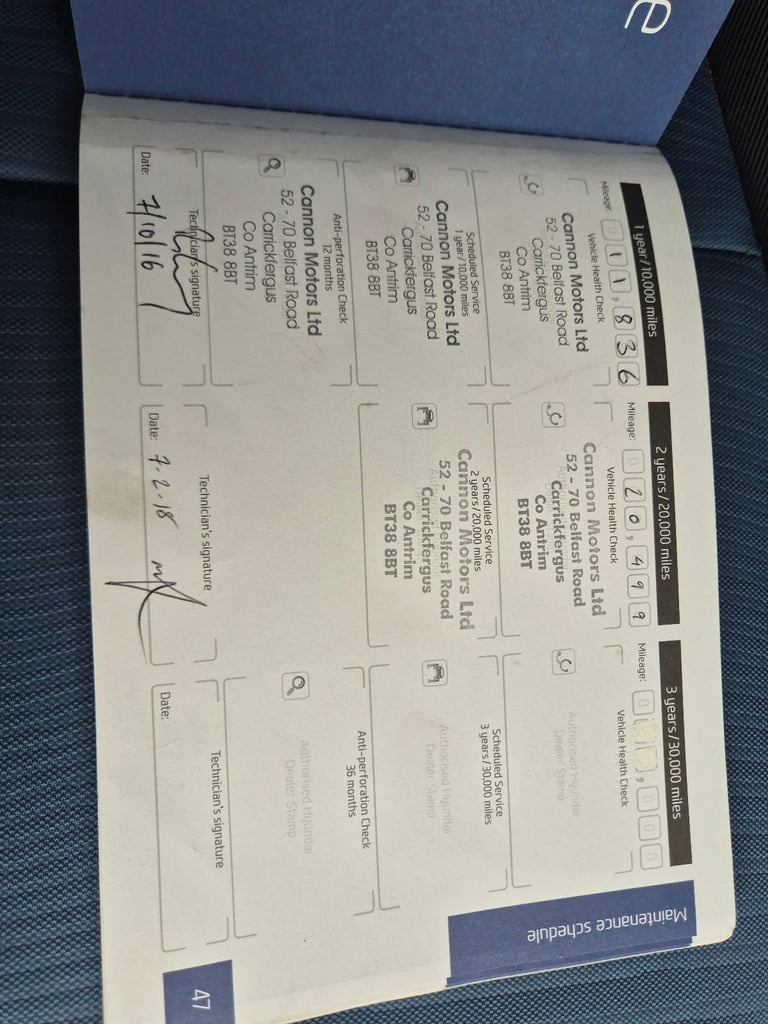 e
Maintenance schedule
1 year/10,000 miles
Mileage: 011,836
Vehicle Health Check
Cannon Motors Ltd
52 - 70 Belfast Road
Carrickfergus
Co Antrim
BT38 8BT
Scheduled Service
1 year/10,000 miles
Cannon Motors Ltd
52 - 70 Belfast Road
Carrickfergus
Co Antrim
BT38 8BT
Anti-perforation Check
12 months
Cannon Motors Ltd
52 - 70 Belfast Road
Carrickfergus
Co Antrim
BT38 8BT
Technician's signature
Date: 7/10/16
2 years/20,000 miles
Mileage: 020,499
Vehicle Health Check
Cannon Motors Ltd
52 - 70 Belfast Road
Carrickfergus
Co Antrim
BT38 8BT
Scheduled Service
2 years/20,000 miles
Cannon Motors Ltd
52 - 70 Belfast Road
Carrickfergus
Co Antrim
BT38 8BT
Technician's signature
Date: 7-2-18
3 years/30,000 miles
Mileage: 0 ,000
Vehicle Health Check
Authorised Hyundai
Dealer Stamp
Scheduled Service
3 years/30,000 miles
Authorised Hyundai
Dealer Stamp
Anti-perforation Check
36 months
Authorised Hyundai
Dealer Stamp
Technician's signature
Date:
47